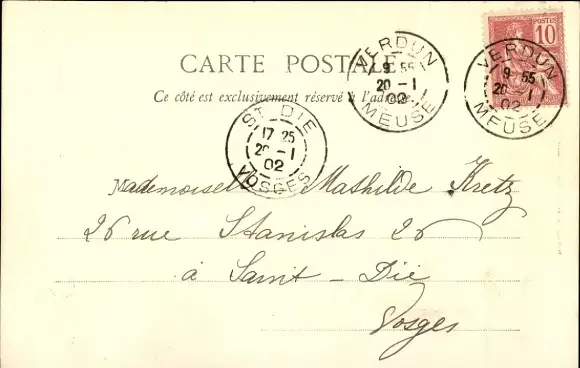 CARTE POSTALE
Ce côté est exclusivement réservé à l'adresse.
POSTES
10
VERDUN
9 55
20 - 1
02
MEUSE
VERDUN
9 55
20 - 1
02
MEUSE
ST DIE
17 25
20 - 1
02
VOSGES
Mademoiselle Mathilde Kretz
26 rue Stanislas 26
à Saint - Dié
Vosges